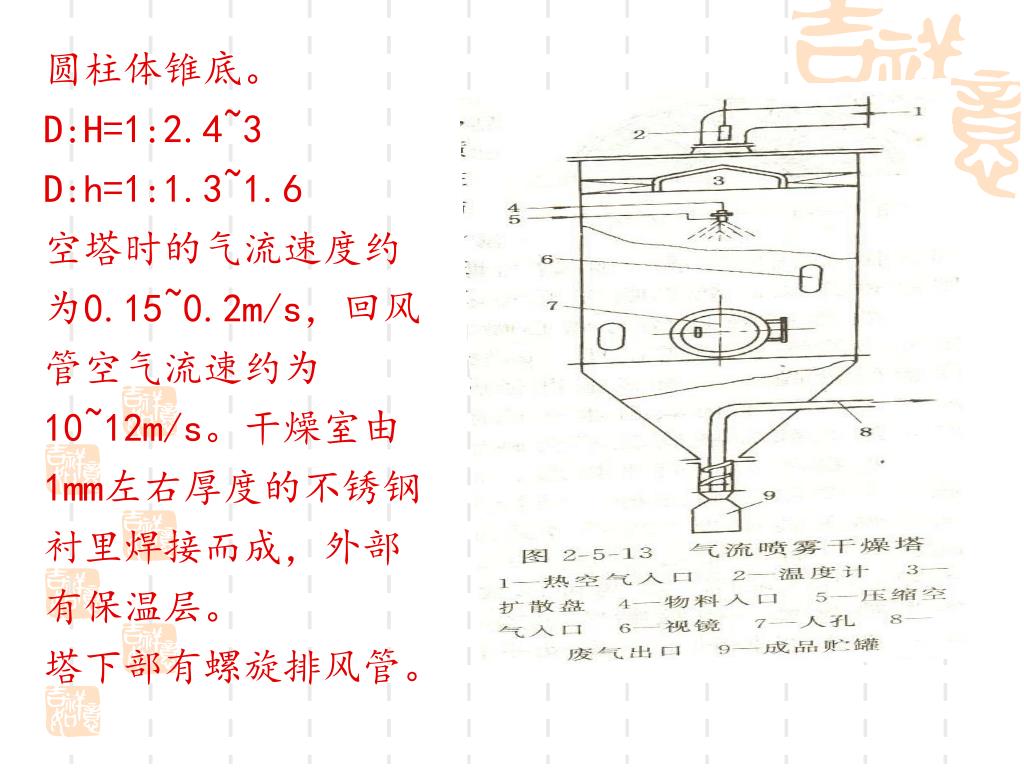 圆柱体锥底。
D:H=1:2.4~3
D:h=1:1.3~1.6
空塔时的气流速度约
为0.15~0.2m/s，回风
管空气流速约为
10~12m/s。干燥室由
1mm左右厚度的不锈钢
衬里焊接而成，外部
有保温层。
塔下部有螺旋排风管。
吉祥
意
1
2
3
4
5
6
7
8
9
图 2-5-13 气流喷雾干燥塔
1—热空气入口 2—温度计 3—
扩散盘 4—物料入口 5—压缩空
气入口 6—视镜 7—人孔 8—
废气出口 9—成品贮罐